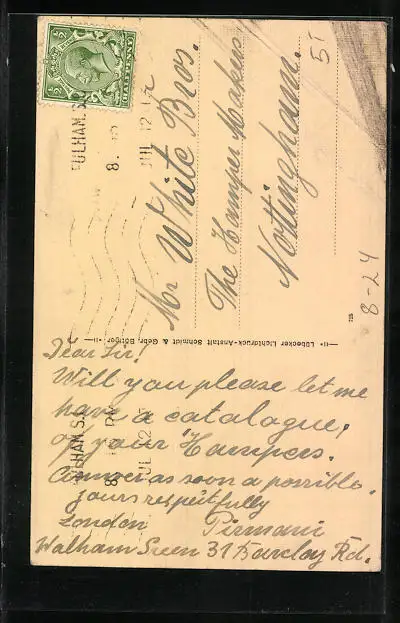 Dear Sir!
Will you please let me
have a catalogue,
of your Hampers.
Answer as soon a possible.
yours respectfully
London Pirmani
Walham Green 31 Barclay Rd.
Mr White Bros.
The Hamper Makers
Nottingham.
51
8-24
Lübecker Lichtdruck-Anstalt Schmidt & Gebr. Böttger
FULHAM.S.
8.
JUL 12
FULHAM.S.
8
JUL 12
½ ½
HALFPENNY